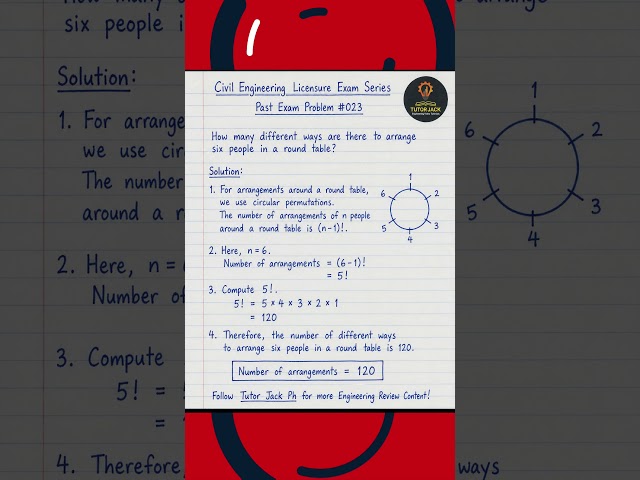 Civil Engineering Licensure Exam Series
Past Exam Problem #023
TUTOR JACK
How many different ways are there to arrange
six people in a round table?
Solution:
1. For arrangements around a round table,
we use circular permutations.
The number of arrangements of n people
around a round table is (n-1)!.
1
2
3
4
5
6
2. Here, n = 6.
Number of arrangements = (6-1)!
= 5!
3. Compute 5!.
5! = 5 × 4 × 3 × 2 × 1
= 120
4. Therefore, the number of different ways
to arrange six people in a round table is 120.
Number of arrangements = 120
Follow Tutor Jack Ph for more Engineering Review Content!
six people i
Solution:
1. For arrange
we use cir
The number
around a r
2. Here, n =
Number of
3. Compute
5! =
=
4. Therefore,
ways
1
2
3
4
5
6